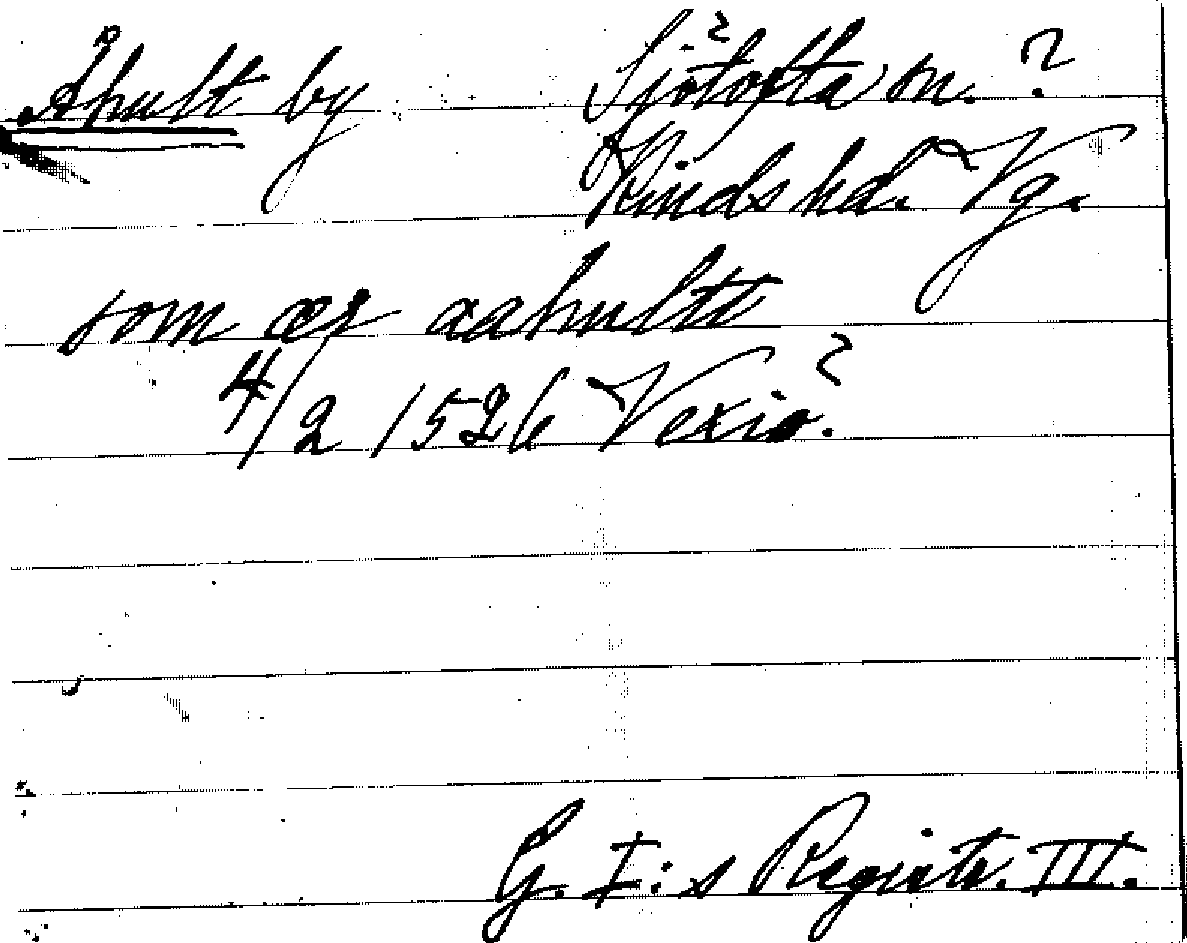 Åhult by Sjötofta sn. ?
Kinds hd. Vg.
som ær aahultt
4/2 1526 Vexio. ?
G. I:s Registr. III.